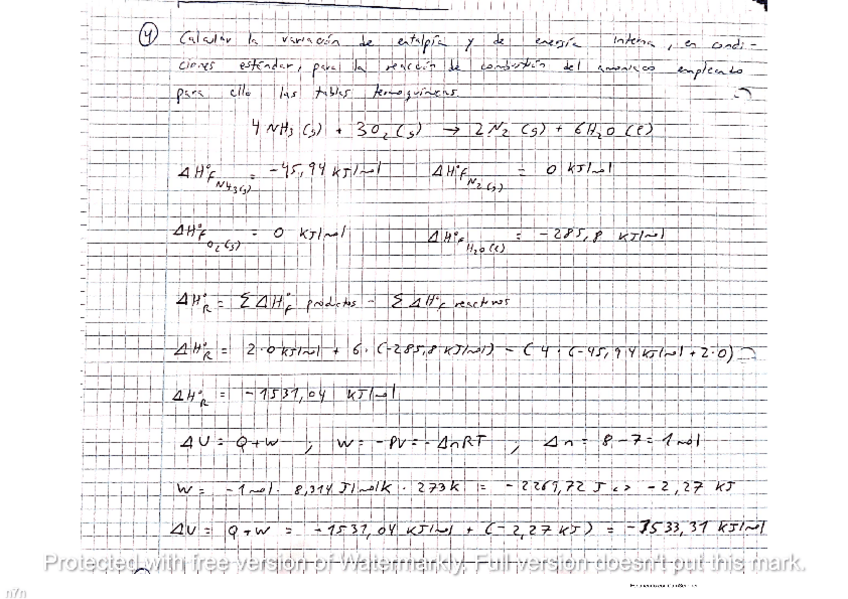 4) Calcular la variación de entalpía y de energía interna, en condi-
ciones estándar, para la reacción de combustión del amoniaco empleando
para ello las tablas termoquímicas.
4 NH3 (g) + 3O2 (g) → 2N2 (g) + 6H2O (l)
ΔH°f NH3(g) = -45,94 kJ/mol ΔH°f N2(g) = 0 kJ/mol
ΔH°f O2(g) = 0 kJ/mol ΔH°f H2O(l) = -285,8 kJ/mol
ΔH°R = ΣΔH°f productos - ΣΔH°f reactivos
ΔH°R = 2·0 kJ/mol + 6·(-285,8 kJ/mol) - (4·(-45,94 kJ/mol + 2·0)
ΔH°R = -1531,04 kJ/mol
ΔU = Q+W ; W = -PV = -ΔnRT ; Δn = 8-7 = 1 mol
W = -1mol · 8,314 J/molK · 273K = -2269,72 J <> -2,27 KJ
ΔU = Q+W = -1531,04 kJ/mol + (-2,27 KJ) = -1533,31 KJ/mol
Protected with free version of Watermarkly. Full version doesn't put this mark.
n7n